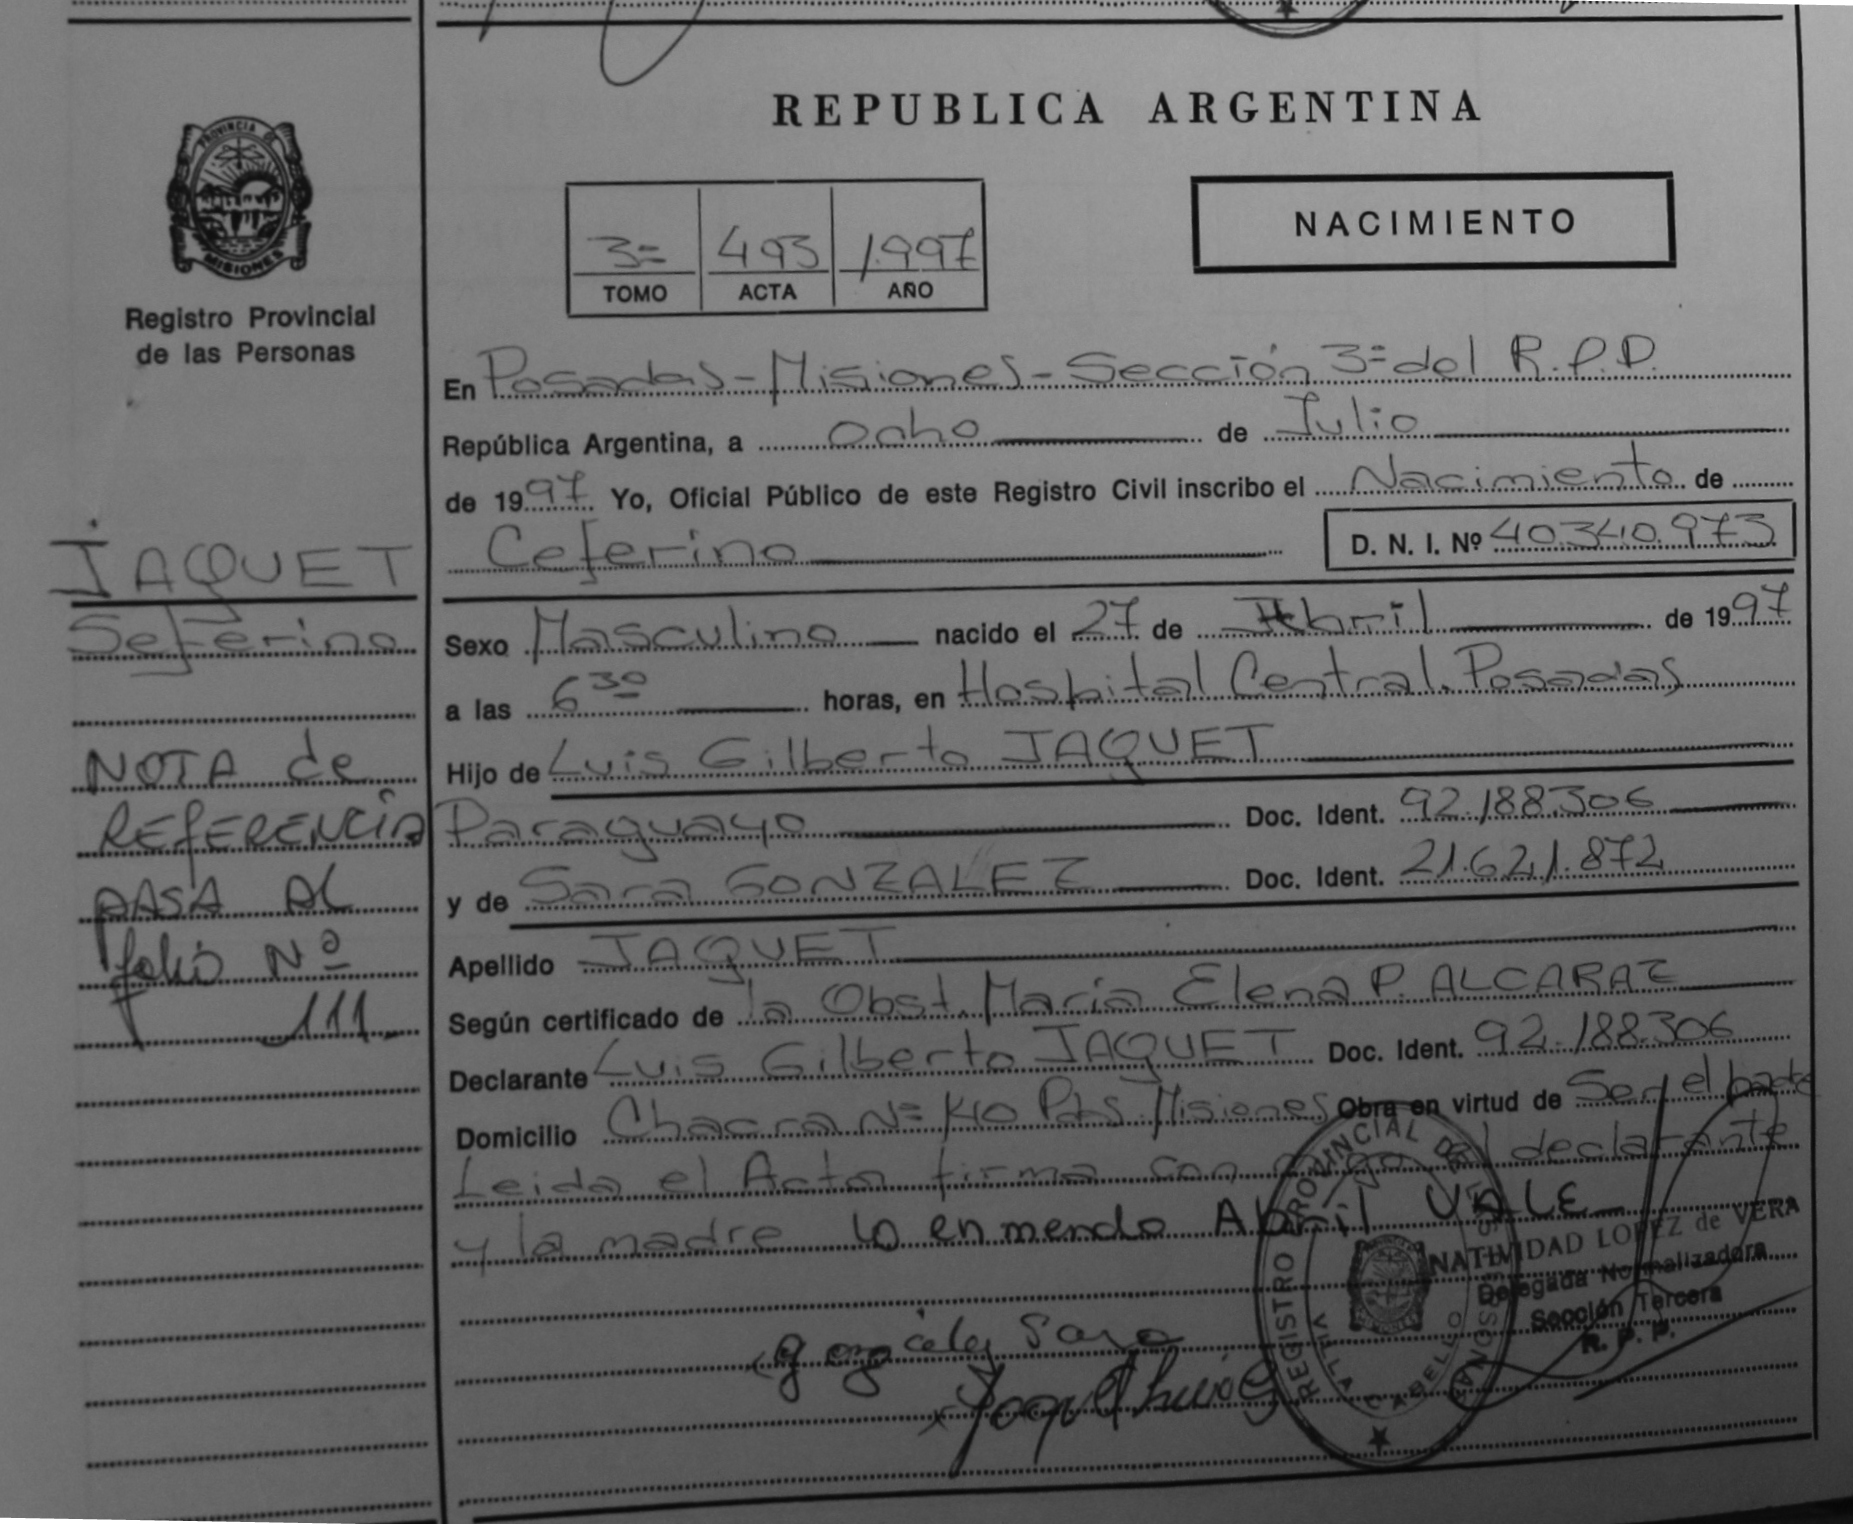 REPUBLICA ARGENTINA
PROVINCIA DE
MISIONES
Registro Provincial
de las Personas
3= 493 1.997
TOMO ACTA AÑO
NACIMIENTO
En Posadas-Misiones-Sección 3= del R.P.P.
República Argentina, a ocho de Julio
de 1997 Yo, Oficial Público de este Registro Civil inscribo el Nacimiento de
Ceferino D. N. I. Nº 40.340.973
JAQUET
Seferino
NOTA de
REFERENCIA
PASA AL
folio Nº
111
Sexo Masculino nacido el 27 de Abril de 1997
a las 6 30 horas, en Hospital Central. Posadas
Hijo de Luis Gilberto JAQUET
Paraguayo Doc. Ident. 92.188.306
y de Sara GONZALEZ Doc. Ident. 21.621.872
Apellido JAQUET
Según certificado de la Obst. María Elena P. ALCARAZ
Declarante Luis Gilberto JAQUET Doc. Ident. 92.188.306
Domicilio Chacra N= Pdas. Misiones Obra en virtud de Ser el padre
Leida el Acta firma con migo el declarante
y la madre lo enmendo Abril VALE
NATIVIDAD LOPEZ de VERA
Delegada Normalizadora
Sección Tercera
R. P. P.
REGISTRO PROVINCIAL DE LAS PERSONAS
VILLA CABELLO
gonzalez Sara
Jaquet Luis G